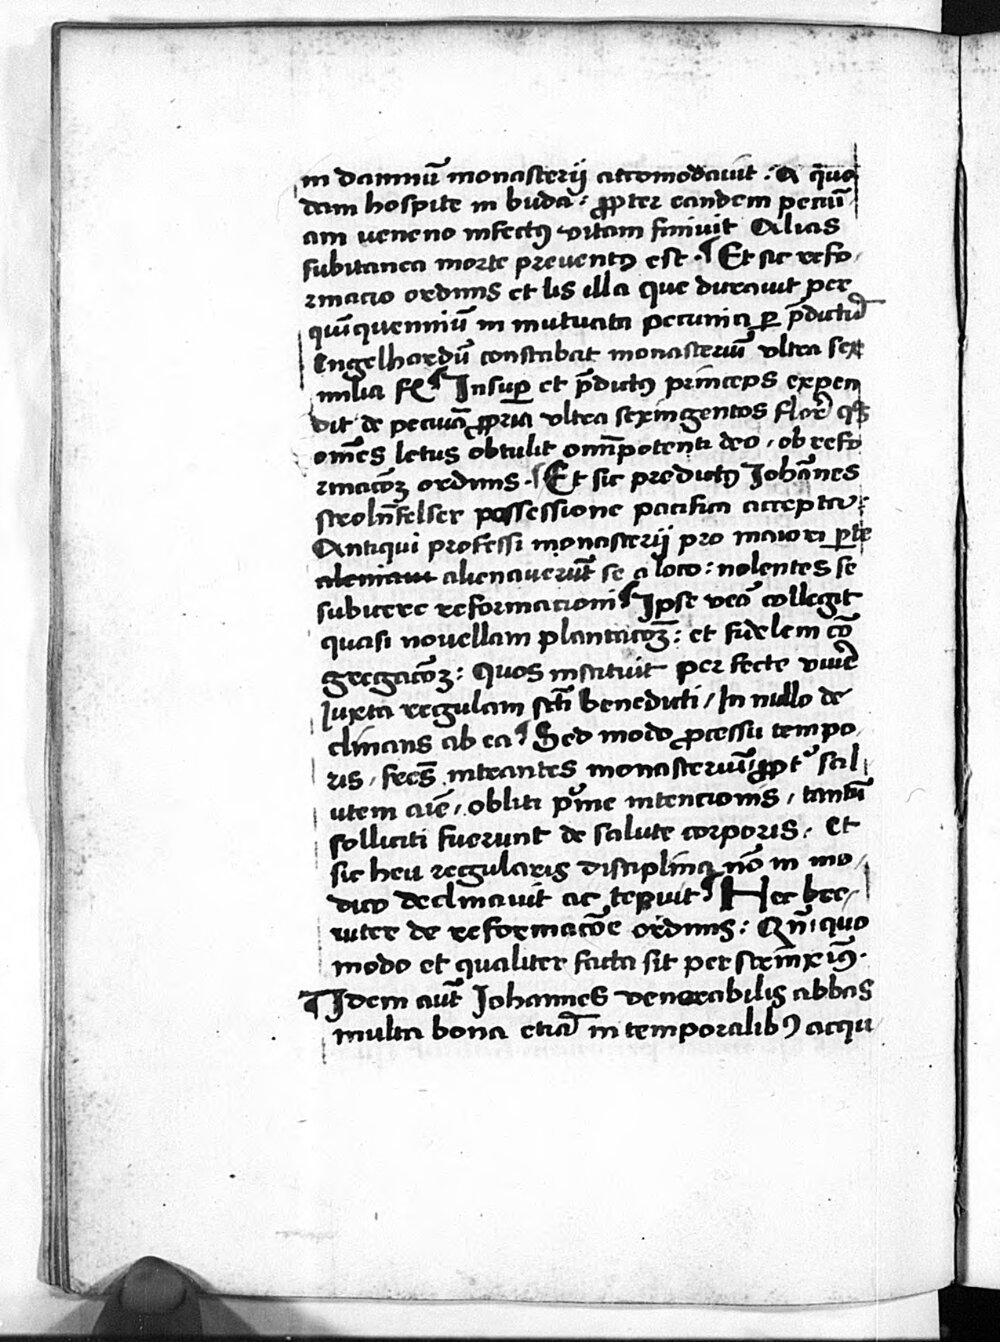 in damnū monasterij accomodauit · A quo
dam hospite in buda · ꝓpter eandem pecuni
am veneno infectꝰ vitam finiuit Alias
subitanea morte preuentꝰ est · Et sic refo
rmacio ordinis et lis illa que durauit per
quīquenniū in mutuata pecunia ꝑ p̄dictū
Engelhardū constabat monasteriū vltra sex
milia fl Insuꝑ et p̄dictꝰ princeps expen
dit de pecunia ꝓpria vltra sexingentos flor qs
om̄es letus obtulit omīpotenti deo · ob refo
rmacōꝫ ordinis · Et sic predictꝰ Joha̅nes
streoln̄felser possessione pacifica accepta ·
Antiqui professi monasterij pro maiori ꝑte
alienauerūt se a loco : nolentes se
subicere reformacioni Ipse vero collegit
quasi nouellam plantacōꝫ : et fidelem cō
gregacōꝫ : Quos instituit perfecte viuere
Iuxta regulam scti benedicti / In nullo de
clinans ab ea Sed modo ꝓcessu tempo
ris , fr̄es intrantes monasteriū ꝓpt sal
utem aīe , obliti pͥme intencionis , tantū
solliciti fuerunt de salute corporis · Et
sic heu regularis disciplina nō in mo
dico declinauit ac tepuit Hec bre
uiter de reformacōe ordinis : Qn̄ quo
modo et qualiter facta sit perstrinximꝰ ·
Idem aūt Johannes venerabilis abbas
multa bona eciā in temporalibꝰ acqui